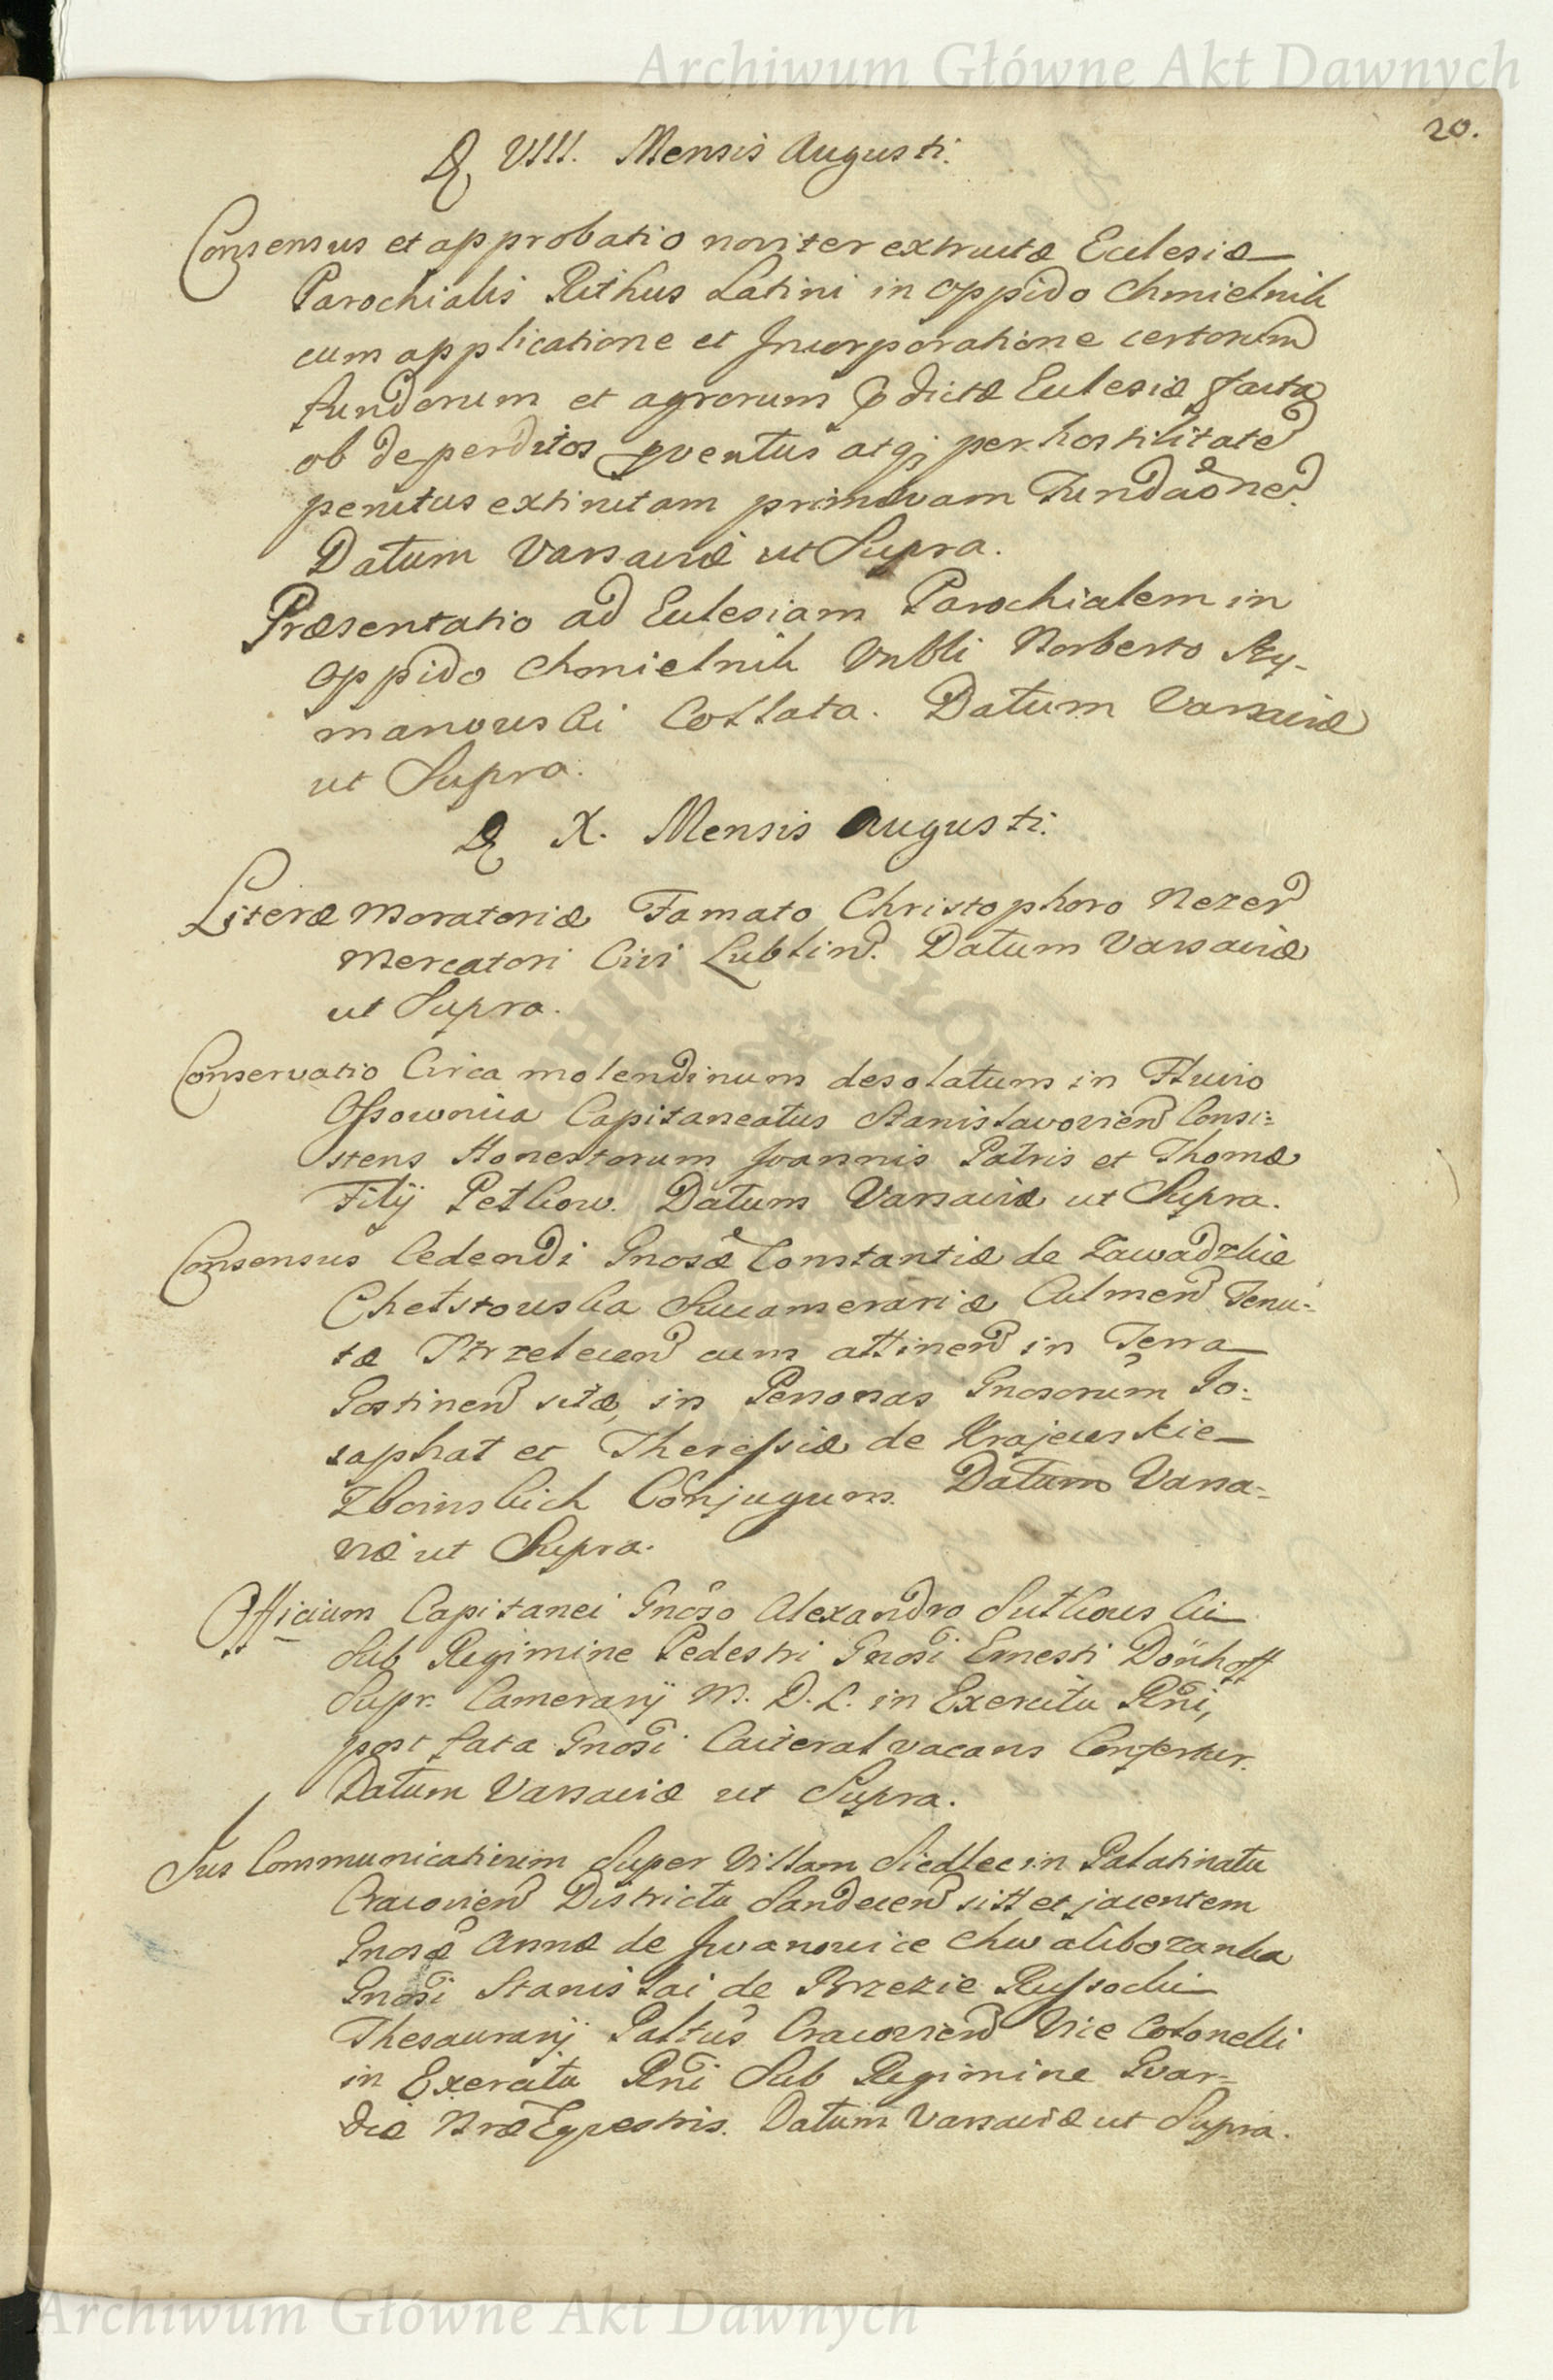 Archiwum Główne Akt Dawnych
20.
D. VIII. Mensis Augusti.
Consensus et approbatio noviter extructæ Ecclesiæ
Parochialis Rithus Latini in oppido Chmielnik
cum applicatione et Incorporatione certorum
fundorum et agrorum pdictæ Ecclesiæ facta
ob deperditos pventus atq; per hostilitatem
penitus extinctam primævam Fundaõnem.
Datum Varsaviæ ut Supra.
Præsentatio ad Ecclesiam Parochialem in
oppido Chmielnik Vnbli Norberto Ry-
manowski Collata. Datum Varsaviæ
ut Supra.
D. X. Mensis Augusti.
Literæ Moratoriæ Famato Christophoro Nezer
Mercatori Civi Lublin. Datum Varsaviæ
ut Supra.
Conservatio Circa molendinum desolatum in Fluvio
Ossownica Capitaneatus Stanislavovien Consi:
stens Honestorum Joannis Patris et Thomæ
Filij Petkow. Datum Varsaviæ ut Supra.
Consensus Cedendi Gnosæ Constantiæ de Zawadzkie
Chełstowska Succamerariæ Culmen Tenu:
tæ Strzelecen cum attinen in Terra
Gostinen sitæ, in Personas Gnosorum Jo:
saphat et Theressiæ de Krajewskie
Zboinskich Conjugum. Datum Varsa:
viæ ut Supra.
Officium Capitanei Gnoso Alexandro Sutkowski
Sub Regimine Pedestri Gnosi Ernesti Dönhoff
Supr. Camerarij M. D. L. in Exercitu Rni,
post fata Gnosi Caiteral vacans Confertur.
Datum Varsaviæ ut Supra.
Jus Communicativum Super Villam Siedlec in Palatinatu
Cracovien Districtu Sandecen sitt et jacentem
Gnosæ Annæ de Jwanowice Chwalibożanka
Gnosi Stanislai de Brzezie Russocki
Thesaurarij Paltus Cracovien Vice Colonelli
in Exercitu Rni Sub Regimine Gvar-
diæ Nræ Eqvestris. Datum Varsaviæ ut Supra.
Archiwum Główne Akt Dawnych